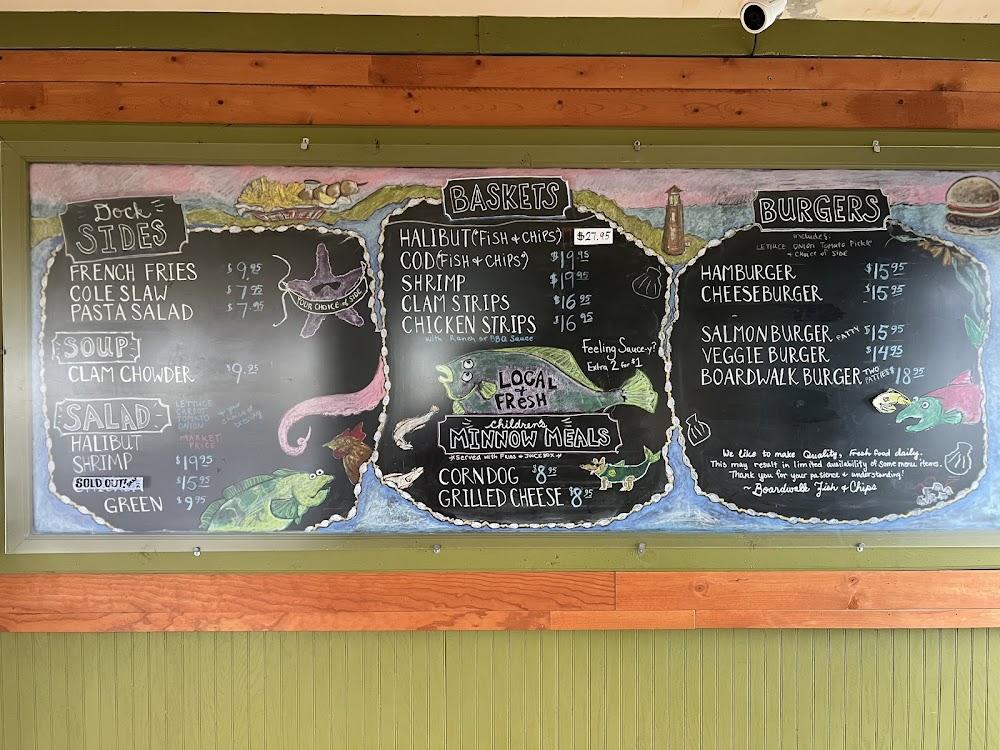 Dock
SIDES
FRENCH FRIES $9.95
COLE SLAW $7.95
PASTA SALAD $7.95
YOUR CHOICE of SIDE
SOUP
CLAM CHOWDER $9.25
SALAD
LETTUCE
CARROT
TOMATO
ONION
HALIBUT MARKET PRICE
SHRIMP $19.95
SOLD OUT! $15.95
GREEN $9.95
BASKETS
HALIBUT (FISH & CHIPS) $27.95
COD (FISH & CHIPS) $19.95
SHRIMP $19.95
CLAM STRIPS $16.95
CHICKEN STRIPS $16.95
with Ranch or BBQ Sauce
Feeling Sauce-y?
Extra 2 for $1
LOCAL
+
FRESH
Children's
MINNOW MEALS
*SERVED with FRIES & JUICE BOX*
CORNDOG $8.95
GRILLED CHEESE $8.95
BURGERS
includes:
LETTUCE ONION Tomato Pickle
& CHOICE of SIDE
HAMBURGER $15.95
CHEESEBURGER $15.95
SALMON BURGER PATTY $15.95
VEGGIE BURGER $14.95
BOARDWALK BURGER TWO PATTIES $18.95
We Like to make Quality, Fresh food daily.
This may result in limited availability of some menu items.
Thank you for your patience & understanding!
~ Boardwalk Fish & Chips